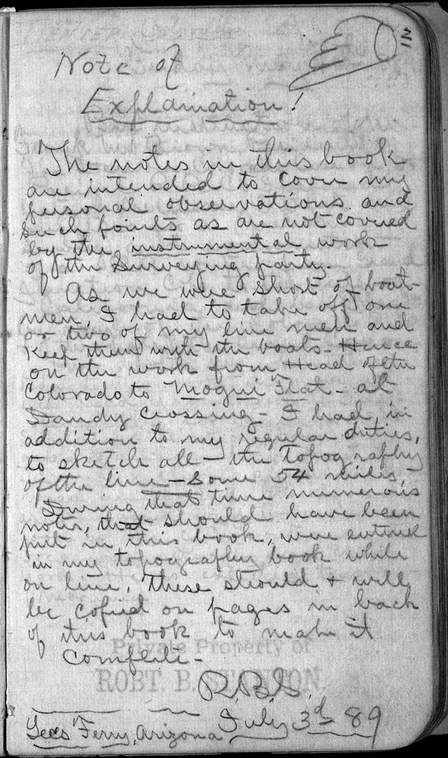 2
Note of
Explaination!
The notes in this book
are intended to cover my
personal observations and
such points as are not covered
by the instrumental work
of the surveying party.
As we were short of boat
men, I had to take off one
or two of my line men and
keep them with the boats. Hence
on the work from Head of the
Colorado to Moqui Flat - at
Dandy Crossing - I had, in
addition to my regular duties,
to sketch all the topography
of the line - some 54 miles,
During that time numerous
notes, that should have been
put in this book, were
in my topography book while
on line, These should & will
be copied on pages in back
of this book to make it
complete -
Private Property of
ROBT. B. STANTON.
R.B.S.
Lees Ferry, Arizona July 3d 89